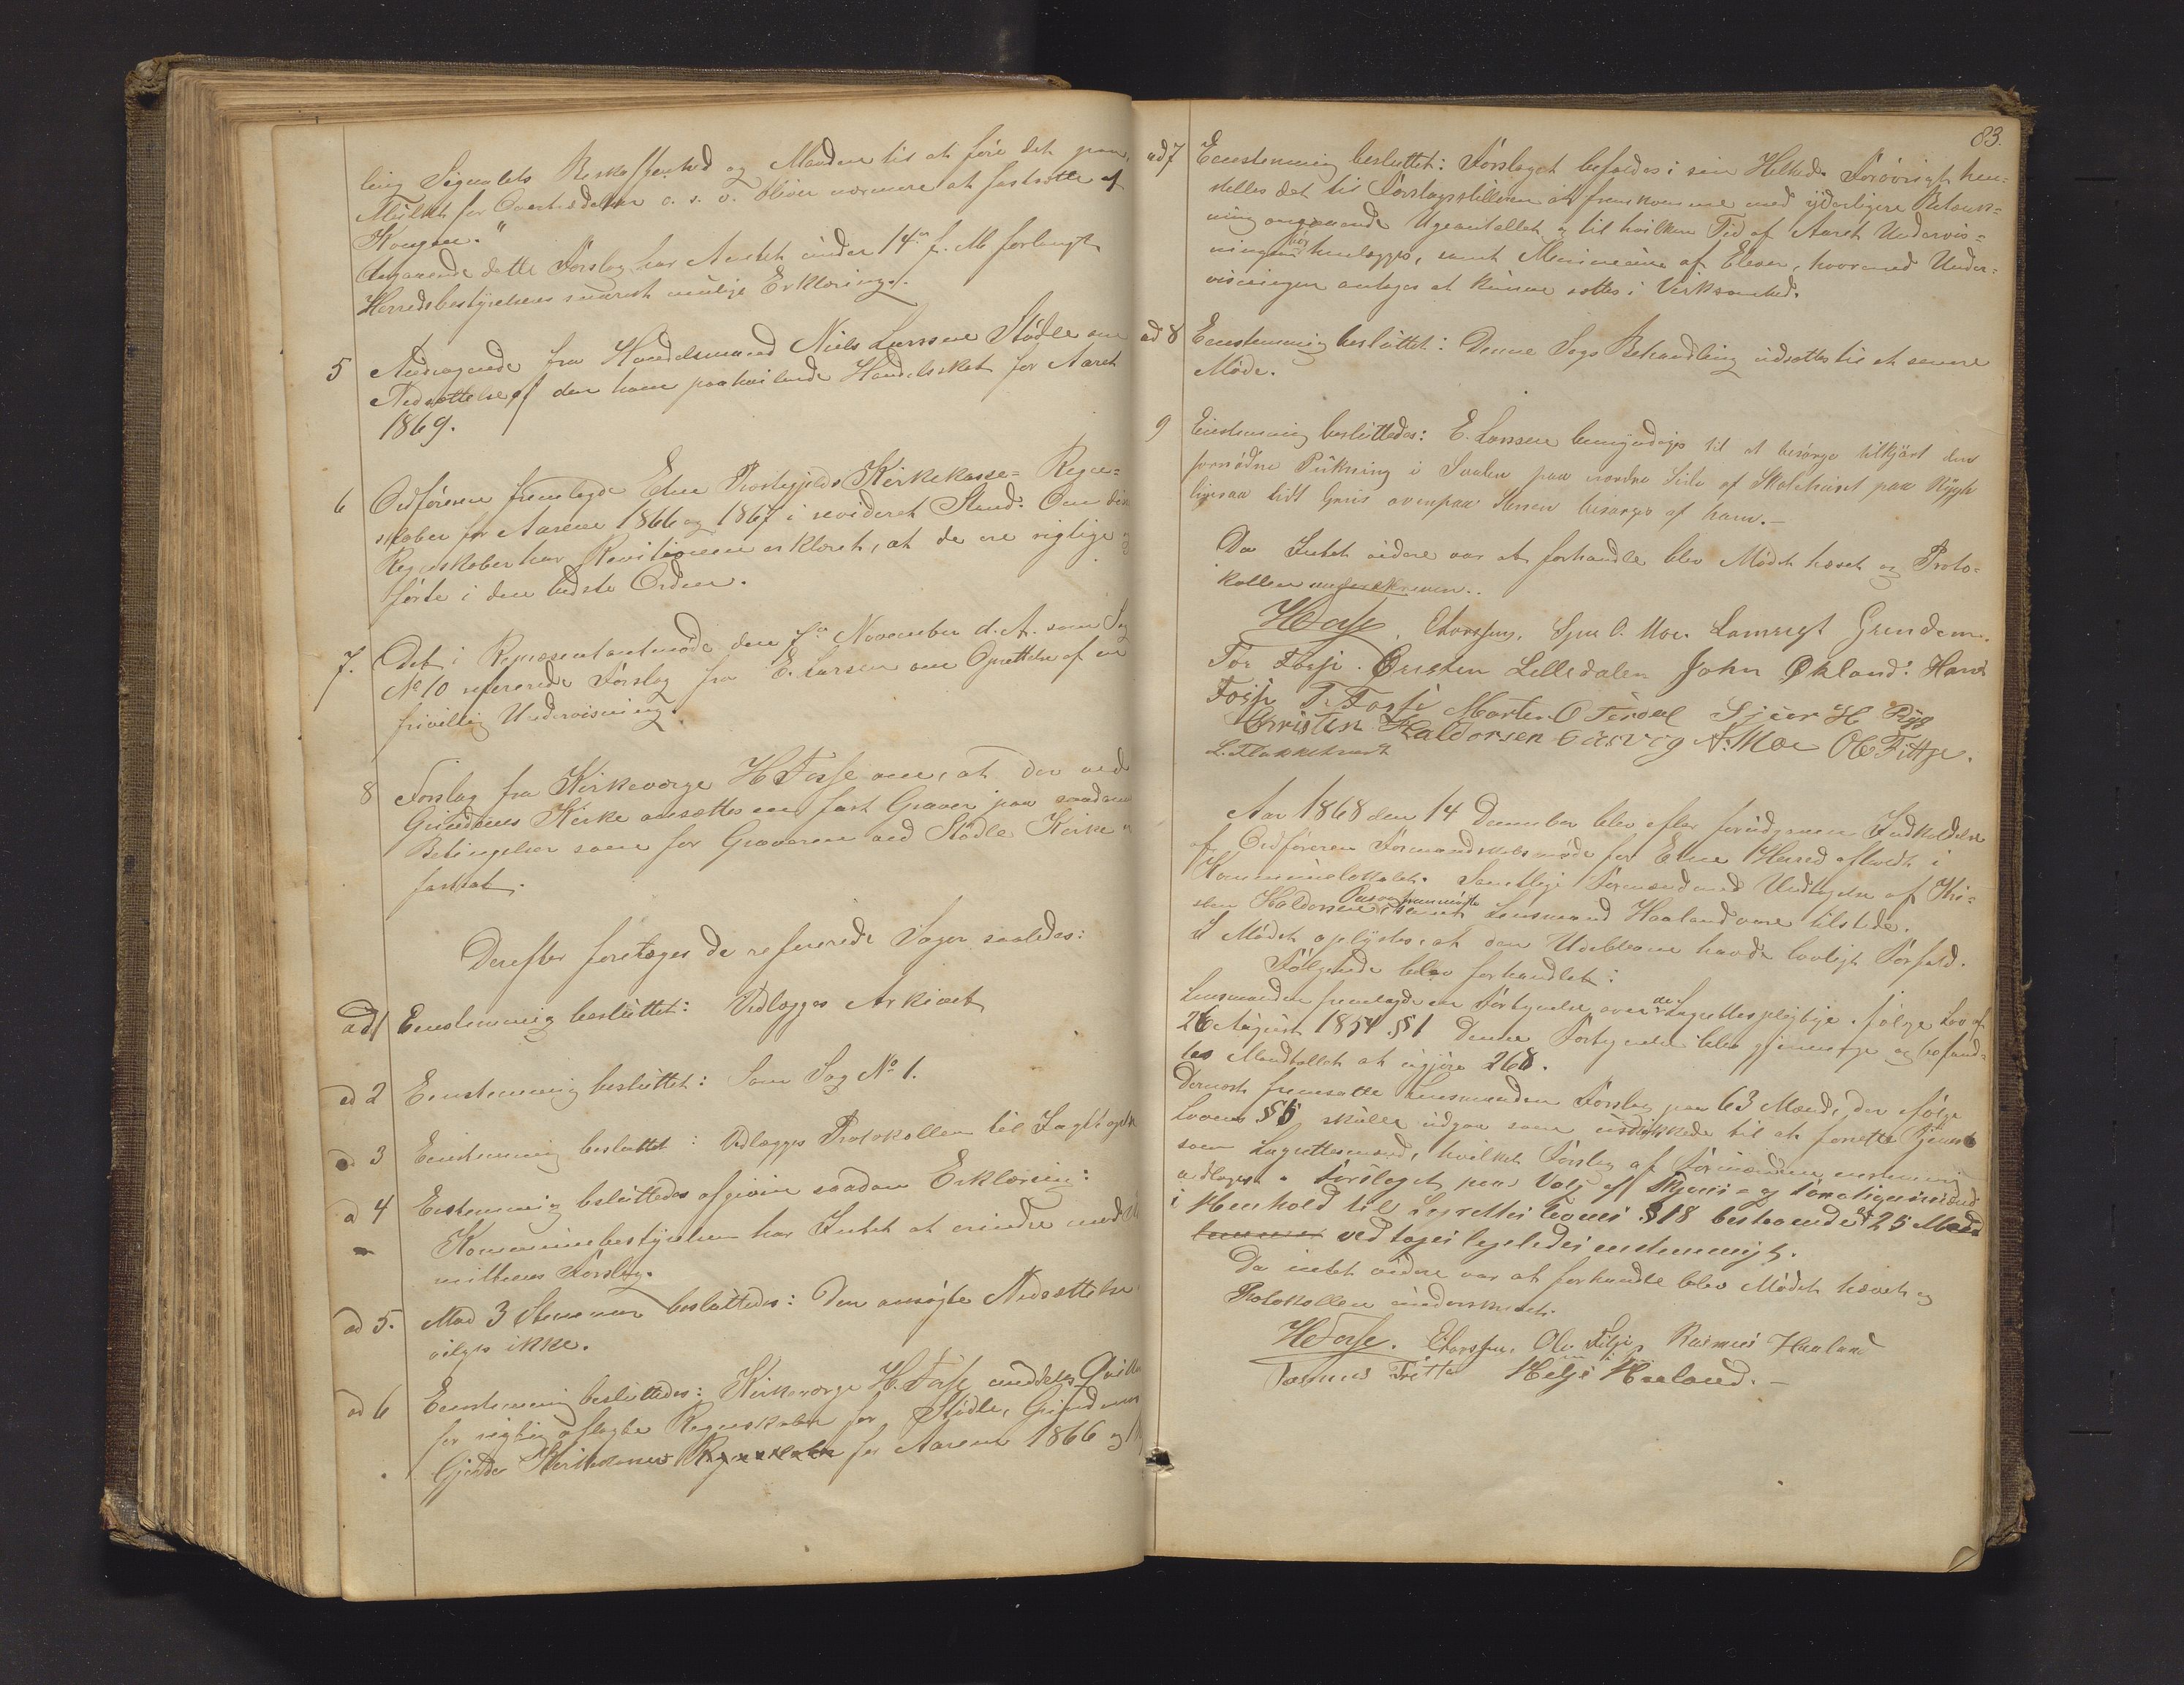 ling Signalets Beskaffenhed og Maaden til at före det paa,
Mulkt for Overtrædelsen o. s. v. bliver nærmere at fastsætte af
Kongen."
Angaaende dette Forslag har Amtet under 14de f. M. forlangt
Herredsbestyrelsens snarest mulige Erklæring.
5 Andragende fra Handelsmand Niels Larssen Stödle om
Nedsættelse af den ham paahvilende Handelsskat for Aaret
1869.
6 Ordföreren fremlagde Etne Præstegjelds Kirkekasse= Regn=
skaber for Aarene 1866 og 1867 i revideret Stand. Om disse
Regnskaber har Revisionen erklæret, at de ere rigtige og
förte i den bedste Orden.
7. Det i Repræsentantmöde den 7de November d. A. som Sag
No 10 refererede Forslag fra E. Larsen om Oprettelse af en
frivillig Undervisning.
8 Forslag fra Kirkeværge H Fosse om, at der ved
Grindems Kirke ansættes en fast Graver paa saadanne
Betingelser som for Graveren ved Stödle Kirke er
fastsat.
Derefter foretoges de refererede Sager saaledes:
ad 1 Eenstemmig besluttet: Vedlægges Arkivet
ad 2 Eenstemmig besluttet: Som Sag No 1.
ad 3 Eenstemmig besluttet: Vedlægges Protokollen til
ad 4 Eenstemmig besluttedes afgiven saadan Erklæring:
Kommunebestyrelsen har Intet at erindre mod
mitteens Forslag.
ad 5. Mod 3 Stemmer besluttedes: Den ansögte Nedsættelse
vilges ikke.
ad 6 Eenstemmig besluttedes: Kirkeværge H. Fosse meddeles
for rigtig aflagte Regnskaber for Stödle, Grindems
Gjerde Kirkernes Regnskaber for Aarene 1866 og
83.
ad 7 Eenstemmig besluttet: Forslaget befaldes i sin Helhed. Forövrigt hen=
stilles det til Forslagsstilleren at fremkomme med yderligere Betænk=
ning angaaende Ugeantallet og til hvilken Tid af Aaret Undervis=
ningen bör henlægges, samt Minimum af Elever, hvormed Under=
visningen antages at kunne sættes i Virksomhed.
ad 8 Eenstemmig besluttet: Denne Sags Behandling udsættes til et senere
Möde.
9 Eenstemmig besluttedes: E. Larssen bemyndiges til at besörge tilkjört den
fornödne Pukning i Svalen paa nordre Side af Skolehuset paa Rygh
ligesaa lidt Gruus ovenpaa Stenen besörges af ham.—
Da Intet videre var at forhandle blev Mödet hævet og Proto=
kollen underskreven..
HFosse, ELarssen, O. Moe. Lamregt Grindem.
Tor Fosse. Önsten Lilledalen John Økland. Hans
Fosse T. Fosse Morten O Tesdal Sjur H Ryg
Christen Haldorsen N. Moe Ole Fittje.
Aar 1868 den 14 December blev efter forudgaaende Indkaldelse
af Ordföreren Formandskabsmöde for Etne Herred afholdt i
Kommunelokalet. Samtlige Formænd med Undtagelse af Kri=
sten Haldorsen samt Lensmand Haaland vare tilstede.
I Mödet oplystes, at den Udeblevne havde lovligt Forfald.
Fölgende blev forhandlet:
Lensmanden fremlagde en Fortegnelse over de Lagrettespligtige ifölge Lov af
26 August 1854 § 1 Denne Fortegnelse blev gjennemgaaet og befand=
tes Mandtallet at udgjöre 268.
Dernæst fremsatte Lensmanden Forslag paa 63 Mænd, der ifölge
Lovens § 5 skulle udgaa som uskikkede til at forrette Tjeneste
som Lagrettesmænd, hvilket Forslag af Formændene eenstemmig
vedtoges. Forslaget paa Valg af Skjöns= og Forligelsesmænd
i Henhold til Lagrettes Lovens § 18 bestaaende af 25 Mænd
vedtoges ligeledes eenstemmigt.
Da intet videre var at forhandle blev Mödet hævet og
Protokollen underskrevet.
HFosse. ELarssen. Ole Fitje, Rasmus Haaland
Rasmus Fritte Helje Haaland.—